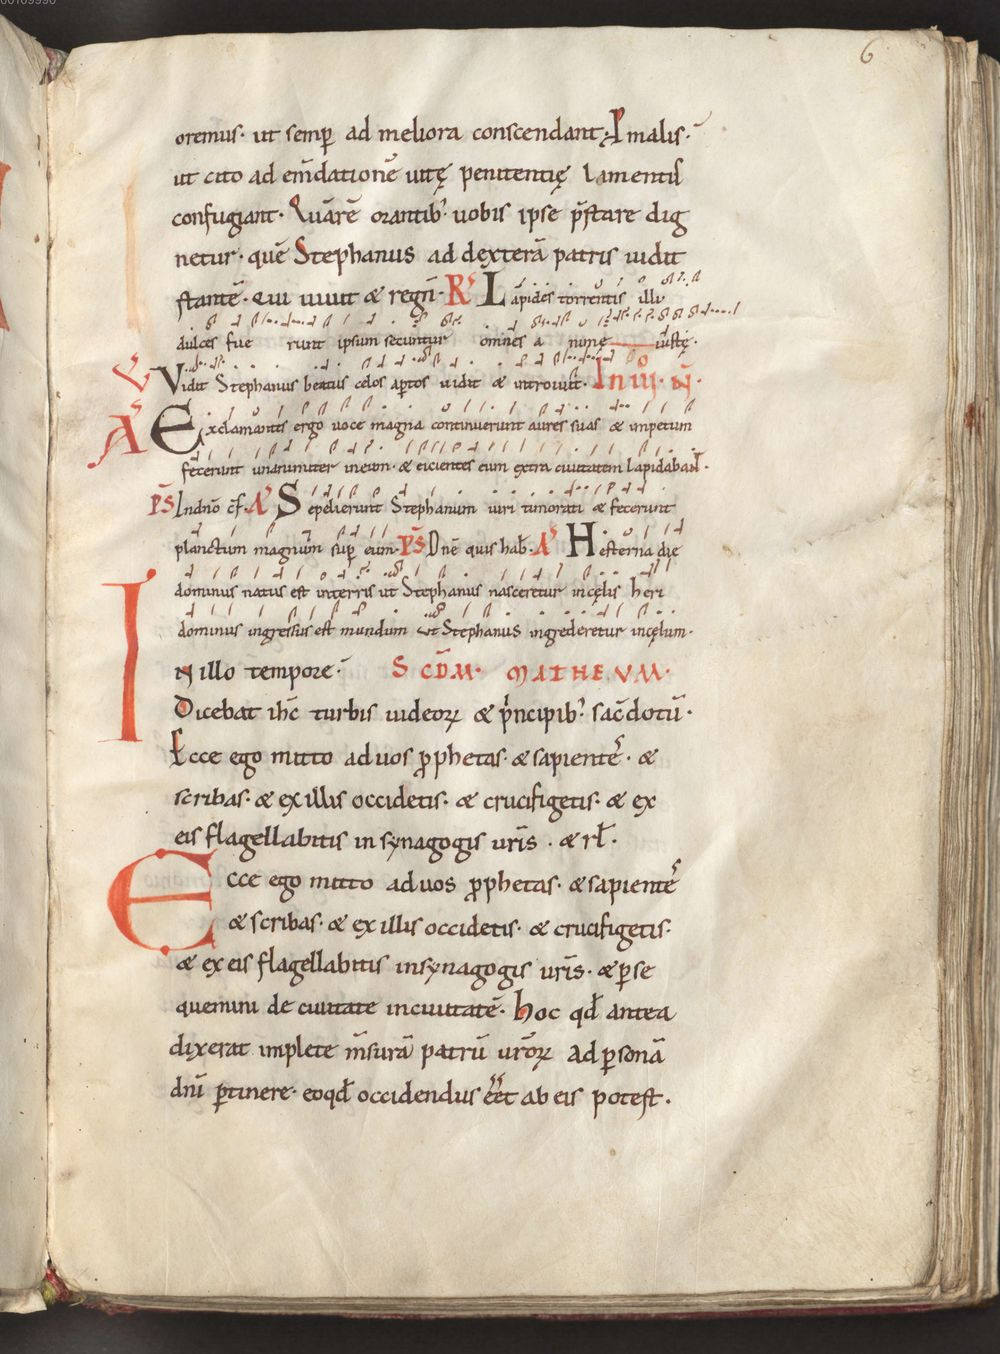 00109990
6
oremus· ut semꝑ ad meliora conscendant· P malis·
ut cito ad em̄dationē uitę penitentię lamentis
confugiant· Quārē orantib; uobis ipse p̄stare dig
netur· quē Stephanus ad dexterā patris uidit
stantē· Qui uiuit & regn̄· R̸ Lapides torrentis illi
dulces fue runt ipsum secuntur omnes a nimę iustę·
V Vidit Stephanus beatus celos aꝑtos uidit & introiuit· In III· N̄·
A Exclamantes ergo uoce magna continuerunt aures suas & impetum
fecerunt unanimiter ineum· & eicientes eum extra ciuitatem lapidabant·
PS̄ Indn̄o cf̄· A Sepelierunt Stephanum uiri timorati & fecerunt
planctum magnum suꝑ eum· PS̄ Dn̄e quis hab̄· A Hesterna die
dominus natus est interris ut Stephanus nasceretur incęlis heri
dominus ingressus est mundum ut Stephanus ingrederetur incęlum·
IN illo tempore· S CD̄M· MATHEVM·
Dicebat ih̄c turbis iudeoꝝ & p̄ncipib; sac̄dotū·
Ecce ego mitto aduos ꝓphetas· & sapientēs· &
scribas· & ex illis occidetis· & crucifigetis· & ex
eis flagellabitis in synagogis ur̄is · & rl̄·
Ecce ego mitto aduos ꝓphetas· & sapientēs
& scribas· & ex illis occidetis· & crucifigetis·
& ex eis flagellabitis insynagogis ur̄is· & ꝑse
quemini de ciuitate inciuitatē· hoc qd̄ antea
dixerat implete m̄surā patrū ur̄oꝝ ad ꝑsonā
dn̄i ꝑtinere· eoqd̄ occidendus ēēt ab eis potest·